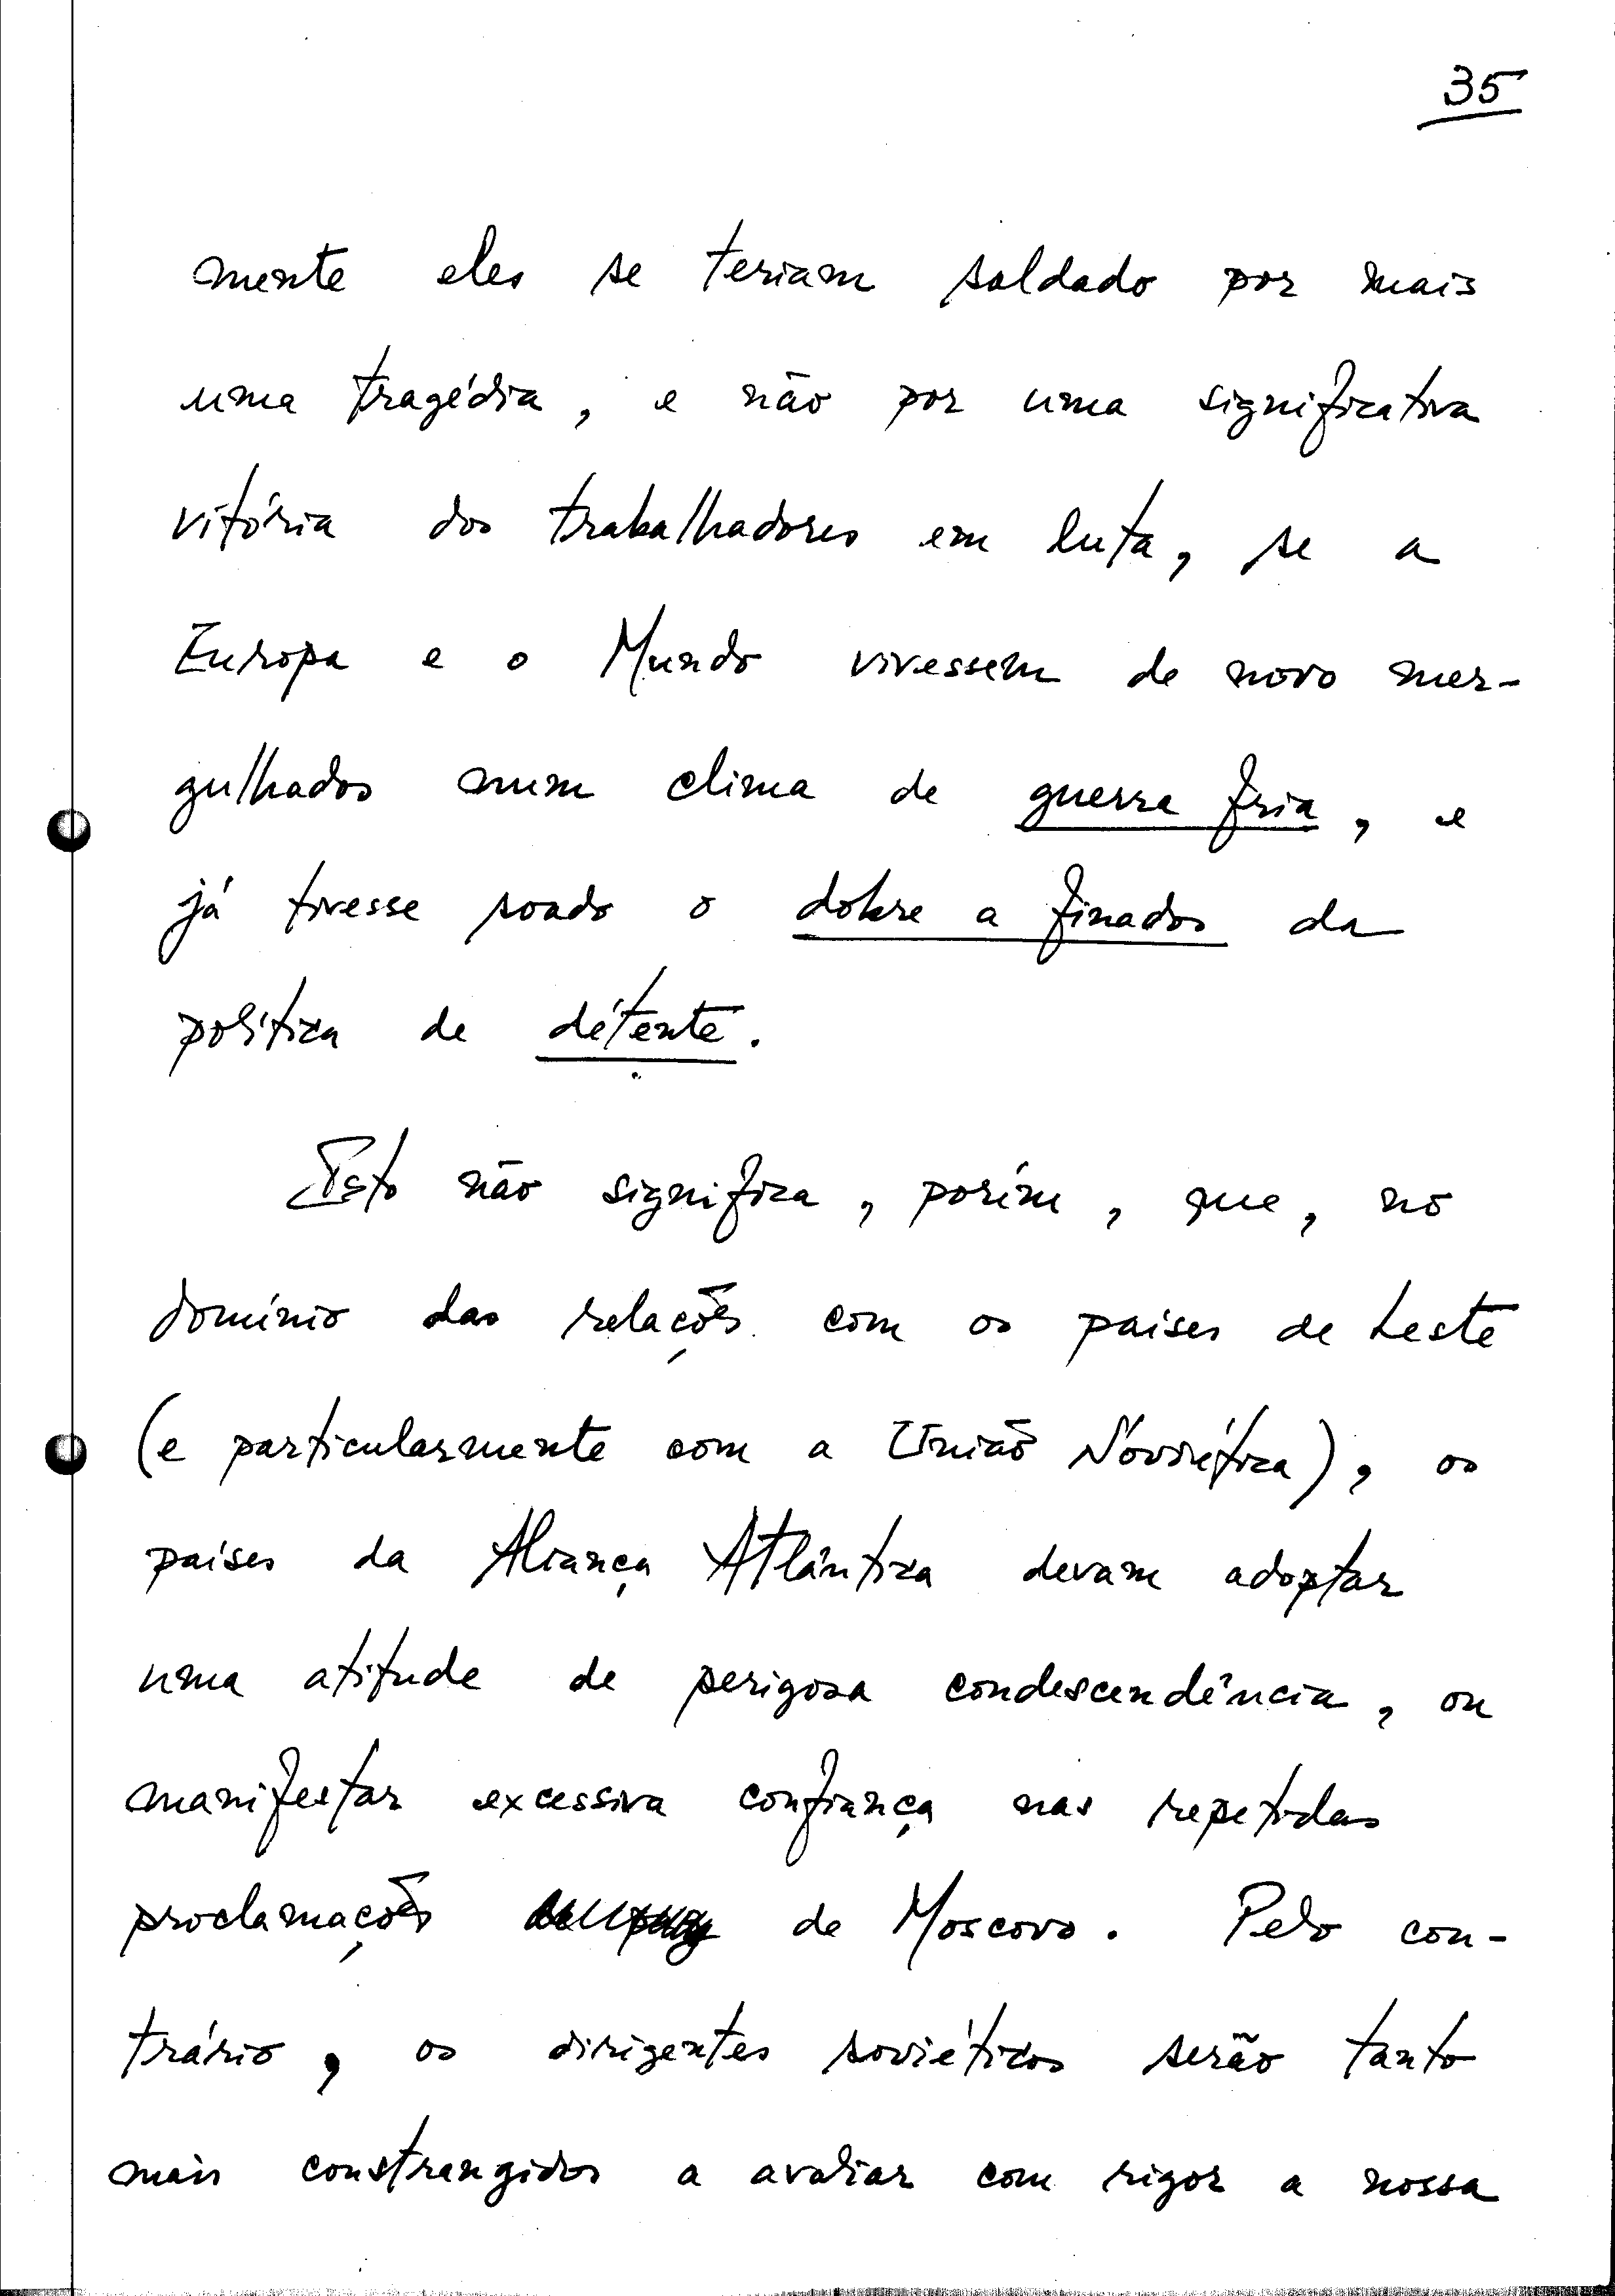 35
mente eles se teriam saldado por mais
uma tragédia, e não por uma significativa
vitória dos trabalhadores em luta, se a
Europa e o Mundo vivessem de novo mer-
gulhados num clima de guerra fria, e
já tivesse soado o dobre a finados da
política de détente.
Isto não significa, porém, que, no
domínio das relações com os países de Leste
(e particularmente com a União Soviética), os
países da Aliança Atlântica devam adoptar
uma atitude de perigosa condescendência, ou
manifestar excessiva confiança nas repetidas
proclamações de Moscovo. Pelo con-
trário, os dirigentes soviéticos serão tanto
mais constrangidos a avaliar com rigor a nossa